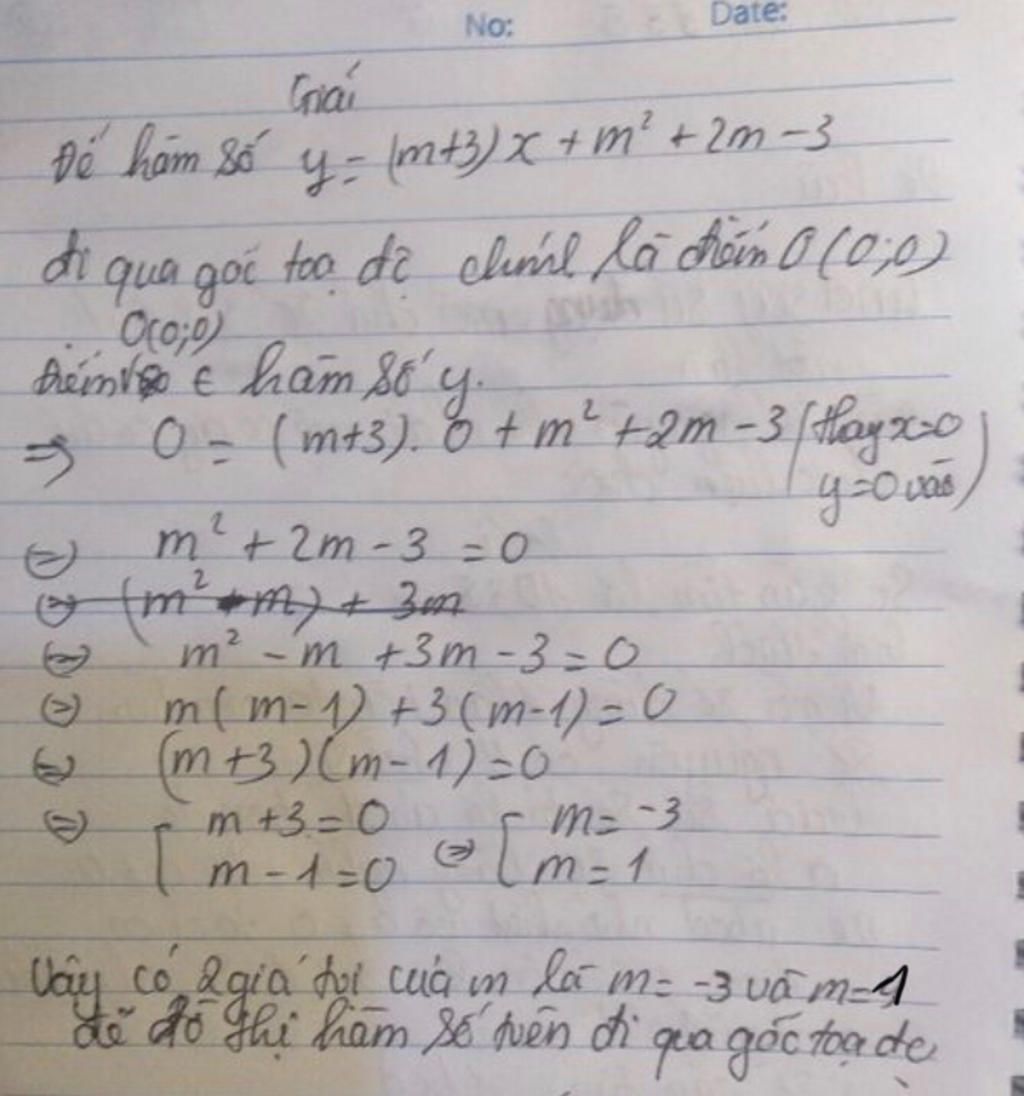 No: Date:
Giải
Để hàm số y = (m+3)x + m² + 2m - 3
đi qua gốc toạ độ chính là điểm O(0;0)
O(0;0)
điểm ∈ hàm số y.
=> 0 = (m+3). 0 + m² + 2m - 3 (thay x=0
y=0 vào)
<=> m² + 2m - 3 = 0
<=> (m² - m) + 3m
<=> m² - m + 3m - 3 = 0
<=> m(m-1) + 3(m-1) = 0
<=> (m+3)(m-1) = 0
<=> [ m+3 = 0 <=> [ m = -3
m - 1 = 0 m = 1
Vậy có 2 giá trị của m là m = -3 và m = 1
để đồ thị hàm số trên đi qua gốc toạ độ